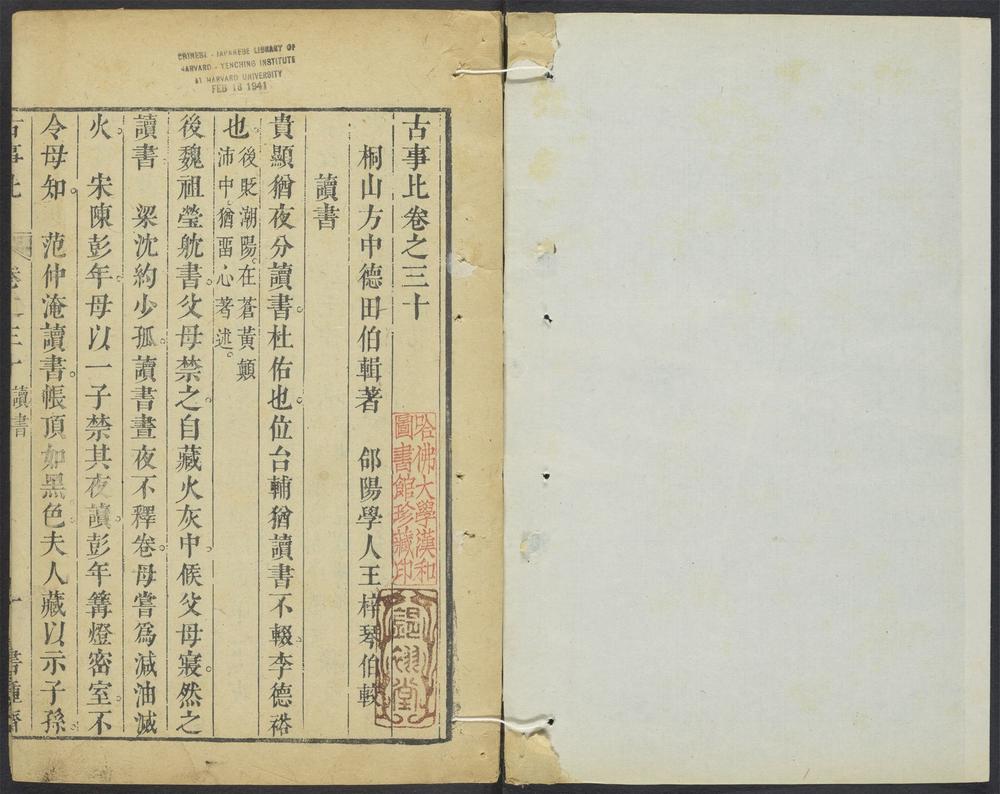 CHINESE - JAPANESE LIBRARY OF
HARVARD - YENCHING INSTITUTE
AT HARVARD UNIVERSITY
FEB 18 1941
古事比卷之三十
桐山方中德田伯輯著　郃陽學人王梓琴伯較
讀書
貴顯猶夜分讀書。杜佑也。位台輔猶讀書不輟。李德裕
也。後貶潮陽。在蒼黃顛
沛中。猶畱心著述。
後魏祖瑩躭書。父母禁之。自藏火灰中。候父母寢。然之
讀書　梁沈約少孤。讀書晝夜不釋卷。母嘗爲減油滅
火。　宋陳彭年。母以一子禁其夜讀。彭年篝燈密室。不
令母知。　范仲淹讀書。帳頂如黑色。夫人藏以示子孫。
古事比　卷之三十　讀書　一　書種齋
哈佛大學漢和
圖書館珍藏印